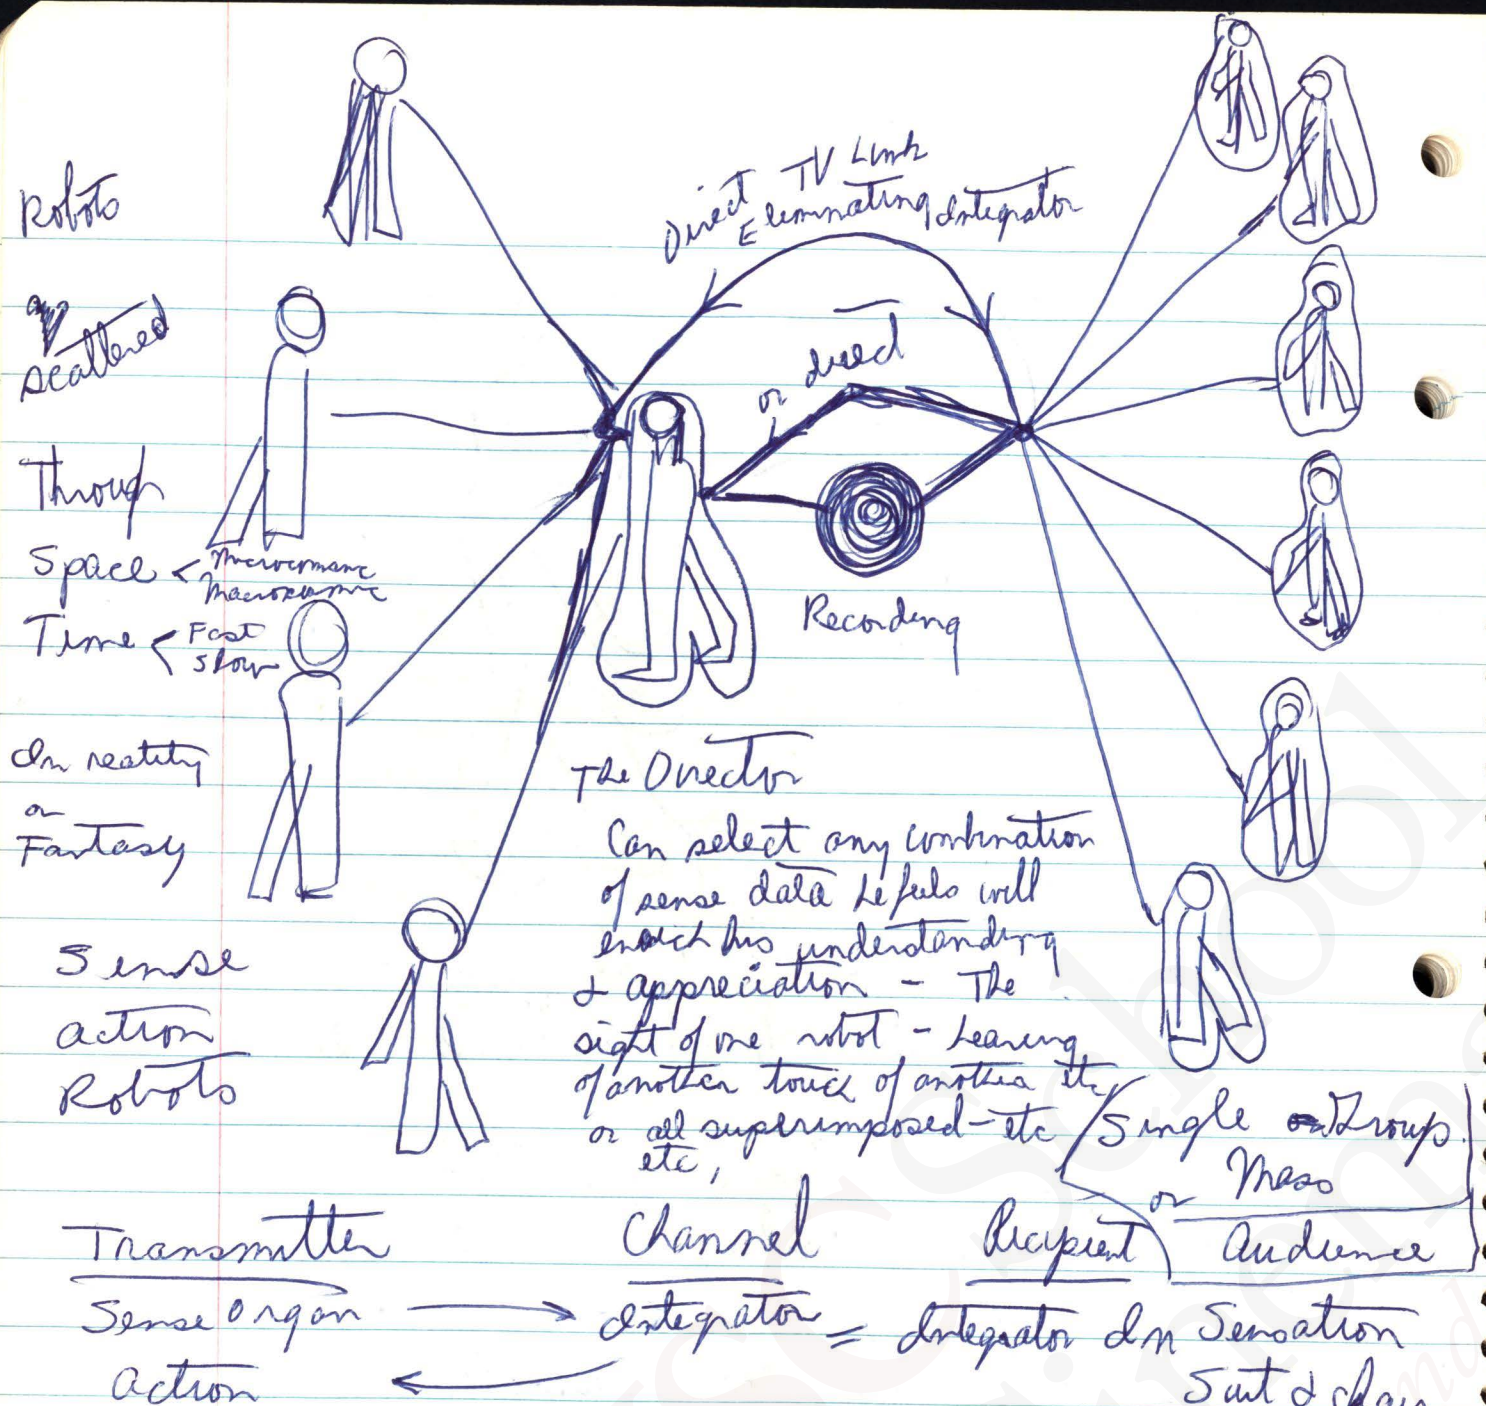 Robots
Scattered
Through
Space < Microcosmic
Macrocosmic
Time < Fast
Slow
In reality
or
Fantasy
Sense
action
Robots
Direct TV Link
Eliminating Integrator
or direct
Recording
The Director
Can select any combination
of sense data he feels will
enrich his understanding
& appreciation - The
sight of one robot - hearing
of another touch of another etc
or all superimposed - etc
etc,
Single or Group
or Mass
Audience
Transmitter
Sense Organ
action
Channel
Integrator
Recipient
= Integrator In Sensation
Suit & chair